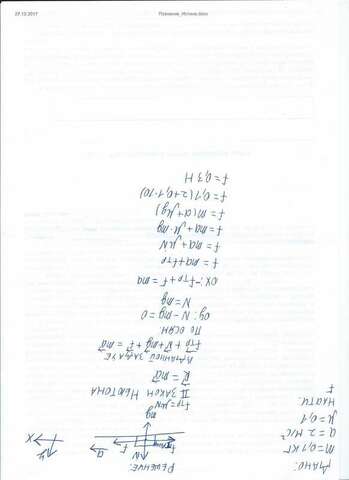 27.12.2017
Познание_Истина.docx
ДАНО:
m=0,1 КГ
a=2 М/С²
μ=0,1
НАЙТИ:
F
РЕШЕНИЕ:
N
a
F
mg
y
X
Fтр=μN
II ЗАКОН НЬЮТОНА
R=ma
В ДАННОЙ ЗАДАЧЕ
Fтр+N+mg+F=ma
ПО ОСЯМ:
Oy: N-mg=0
N=mg
OX: -Fтр+F=ma
F=ma+Fтр
F=ma+μN
F=ma+μ·mg
F=m(a+μg)
F=0,1(2+0,1·10)
F=0,3 Н